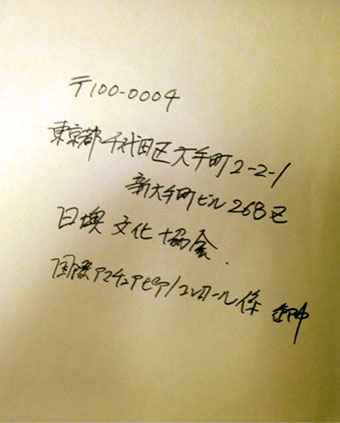 〒100-0004
東京都千代田区大手町2-2-1
新大手町ビル26B区
日墺文化協会
国際アマチュアピアノコンクール係 御中